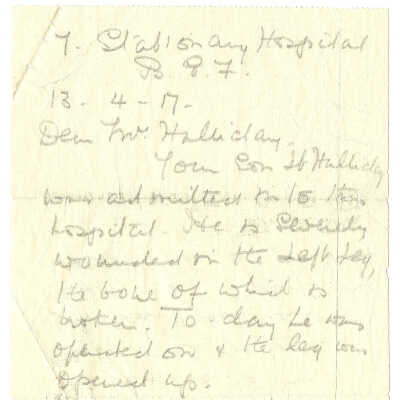 7. Stationary Hospital
B.E.F.
13. 4 - 17.
Dear Mr. Halliday.
Your Son Lt Halliday
was admitted in to this
hospital. He is Severely
wounded in the Left Leg,
the bone of which is
broken. To-day he was
operated on & the leg was
opened up.